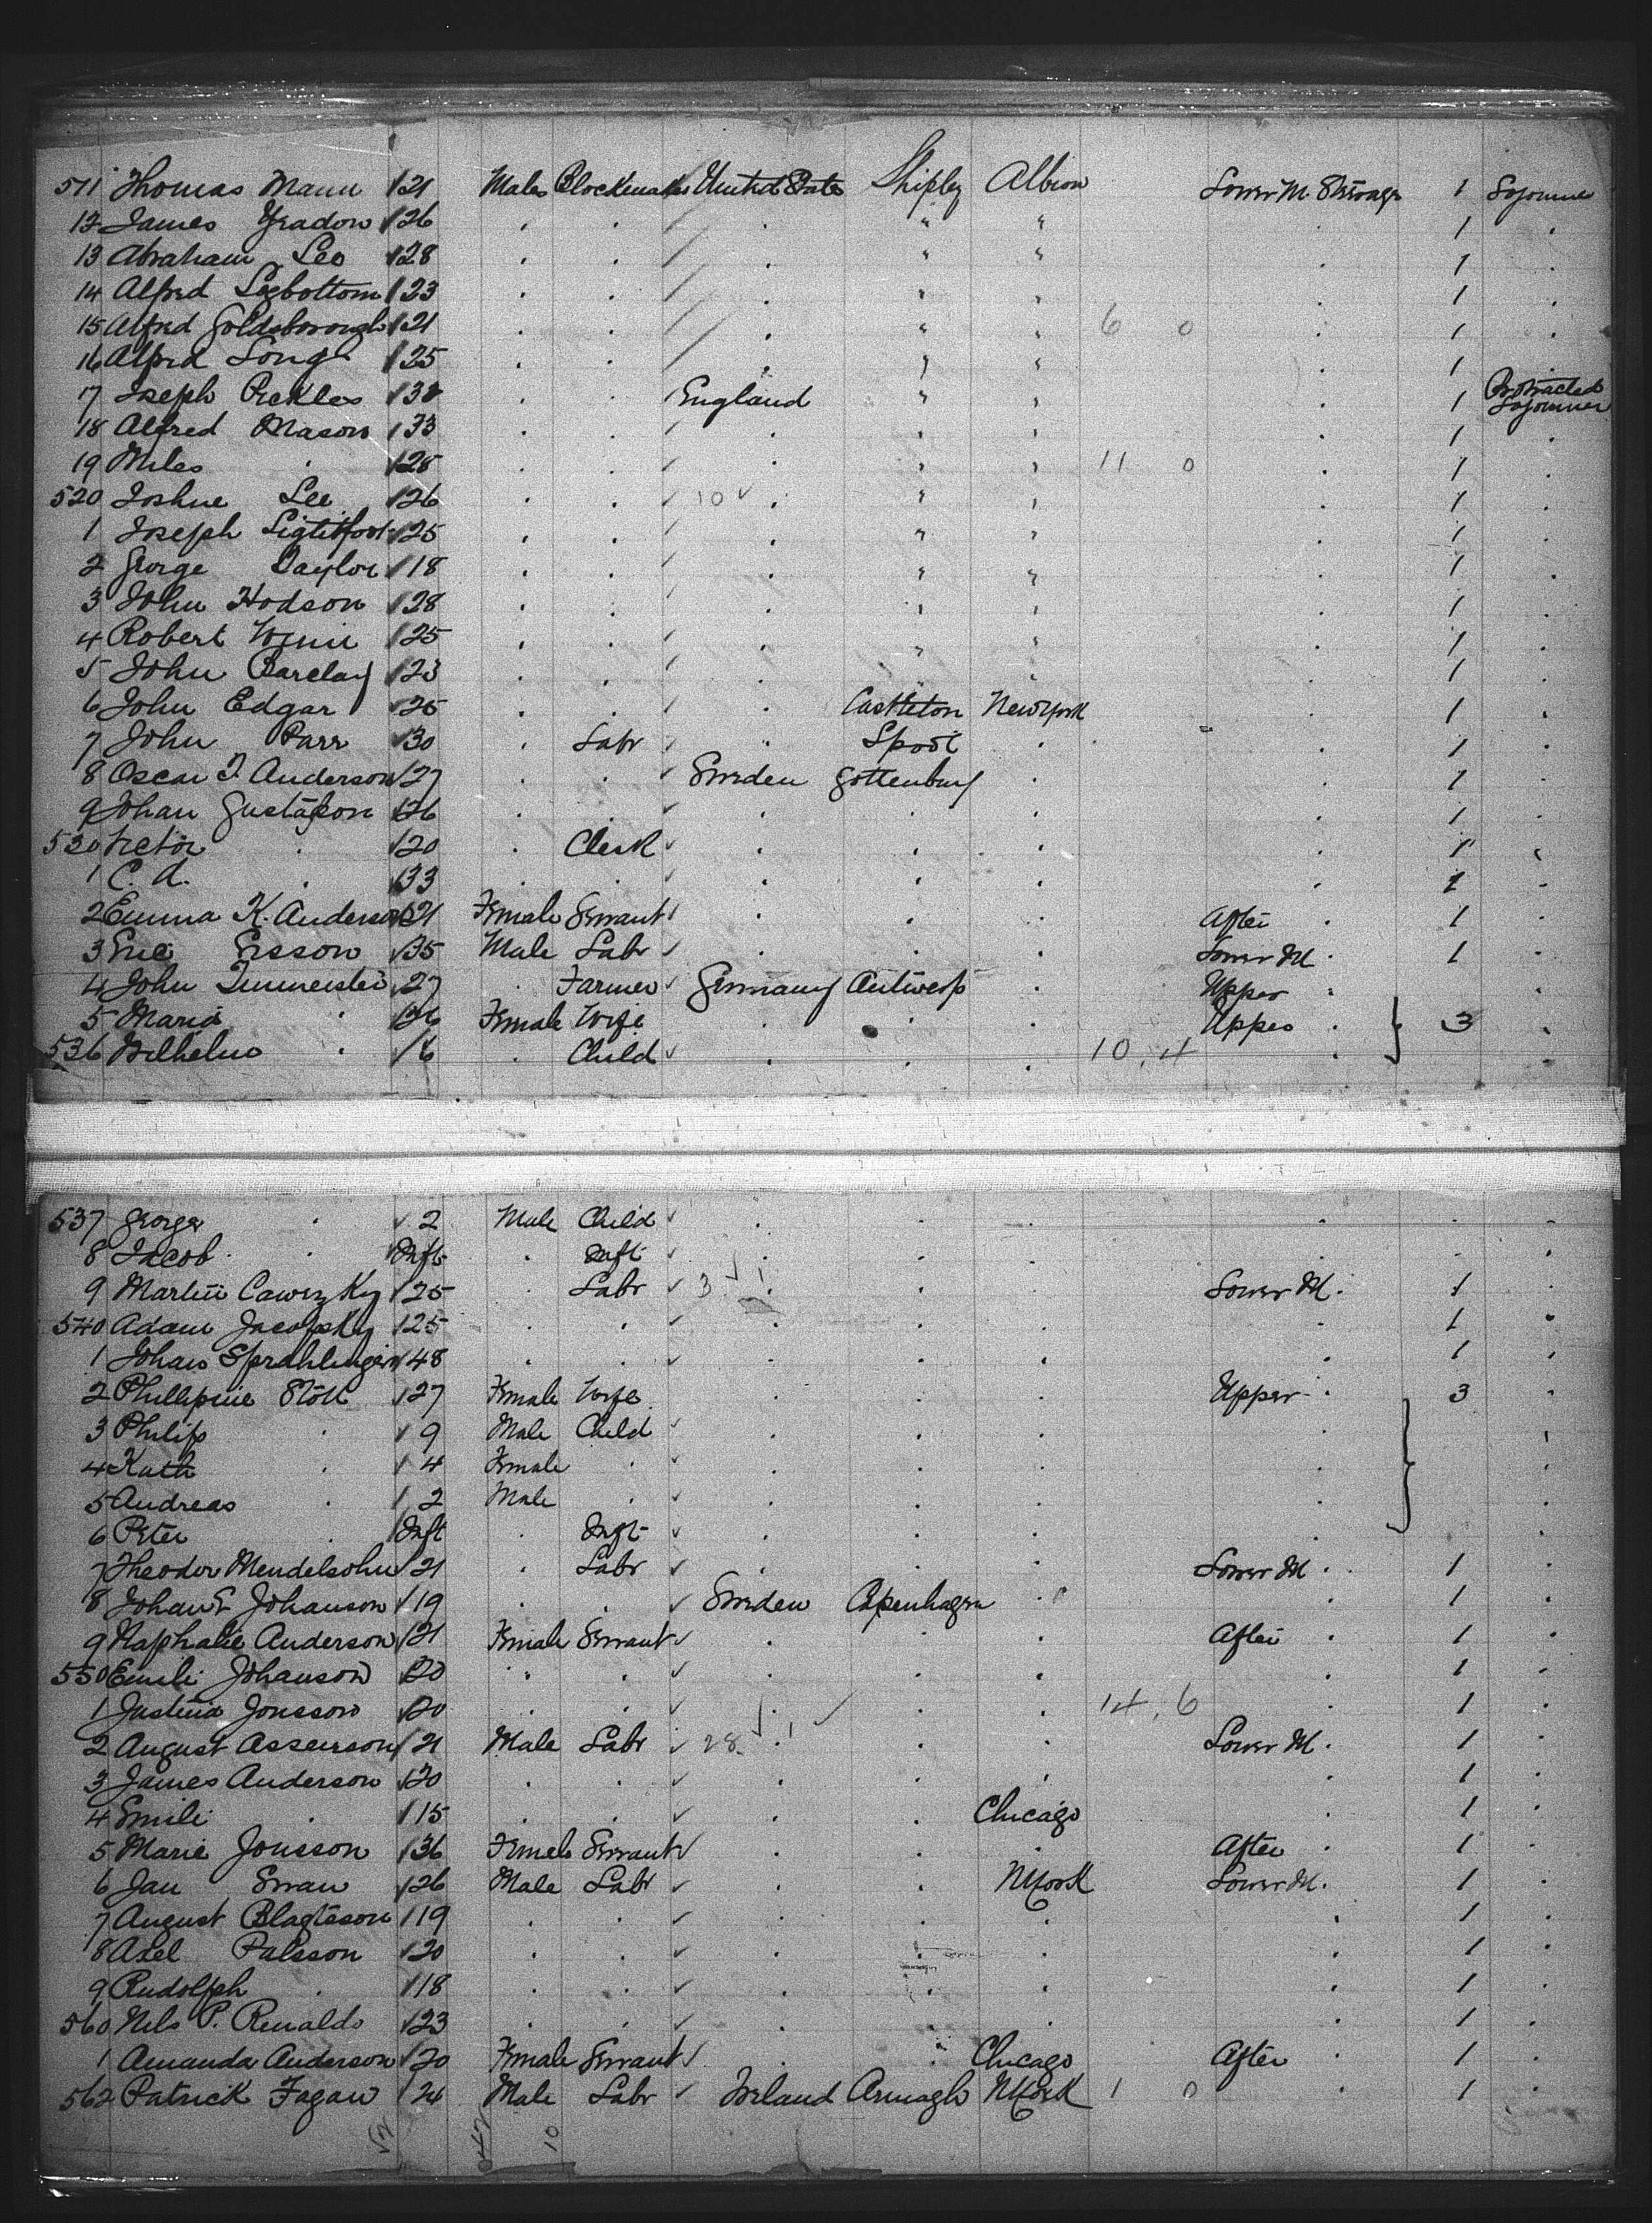 511 Thomas Mann 21 Males Blockmaker United States Shipley Albion Lower M Steerage 1 Sojourner
12 James Yeadon 26 " " 1
13 Abraham Leo 28 " " 1
14 Alfred Legbottom 23 " " 1
15 Alfred Goldsborough 21 " " 6 0 1
16 Alfred Long 25 " " 1
17 Joseph Pickles England " " 1 Protracted Sojourner
18 Alfred Mason 33 " " 1
19 Miles 28 " " 11 0 1
520 Joshue Lee 26 10 " " 1
1 Joseph Ligtitfoot 25 " " 1
2 George Taylor 18 " " 1
3 John Hodson 28 " " 1
4 Robert 25 " " 1
5 John Barclay 23 1
6 John Edgar 25 Castleton New York 1
7 John Parr 30 Labr " 1
8 Oscar Anderson 27 Sweden Gottenburg 1
9 Johan Gustafson 26 1
530 Victor 20 Clerk 1
1 C. A. 33 1
2 Emma K. Anderson 21 Female Servant After 1
3 Eric Ersson 35 Male Labr Lower M 1
4 John 27 Farmer Germany Antwerp Upper
5 Maria 26 Female Wife Upper 3
536 Wilhelm 6 Child 10. 4
537 George 2 Male Child
8 Jacob Inft Inft
9 Martin 25 Labr 3 1 Lower M. 1
540 Adam 25 1
1 48 1
2 Phillipine 27 Female Wife Upper 3
3 Philip 9 Male Child
4 Kath 4 Female
5 Andreas 2 Male
6 Peter Inft Inft
7 Theodor Mendelsohn 21 Labr Lower M. 1
8 Johan Johanson 19 Sweden Copenhagen 1
9 Naphalie Anderson 21 Female Servant After 1
550 Emili Johanson 20 1
1 Justina Jonsson 20 14. 6 1
2 August 21 Male Labr 28. 1 Lower M. 1
3 James Anderson 20 1
4 Emili 15 Chicago 1
5 Marie Jonsson 36 Female Servant After 1
6 Jan Swan 26 Male Labr N York Lower M. 1
7 August 19 1
8 Axel Palsson 20 1
9 Rudolph 18 1
560 Nels P. Renaldo 23 1
1 Amanda Anderson 20 Female Servant Chicago After 1
562 Patrick Fagan Male Labr Ireland Armagh N York 1 0 1